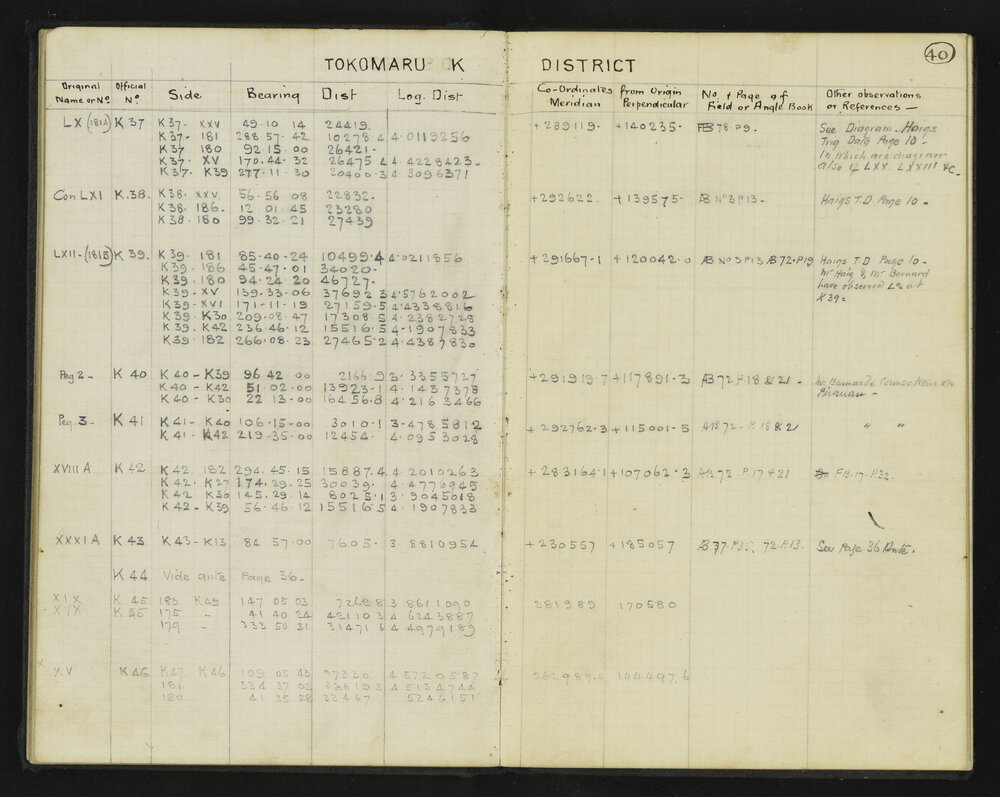 40
TOKOMARU K DISTRICT
Original Name or No. Official No. Side Bearing Dist Log. Dist Co-Ordinates from Origin Meridian Perpendicular No. & Page of Field or Angle Book Other observations or References —
LX (181A) K 37 K 37 - XXV 49-10 14 24419. +289119. +140235. FB 78. P9. See Diagram. Haigs
K 37 - 181 288 57. 42 10278 4 4.0119256 Trig Data Page 10 -
K 37 180 92.15 00 26421. In which are diagram
K 37. XV 170.44.32 26475 4 4.4228423. also of LXX. LXXIII &c.
K 37. K39 277.11.30 20400.3 4.3096371
Con LXI K 38. K 38. XXV. 56.56 08 22832. +292622. +139575. AB No 3 P 13. Haigs T.D. Page 10 -
K 38. 186. 12 01 45 23280
K 38. 180 99.32.21 27439
LXII - (181B) K 39. K 39. 181 85-40-24 10499.4 4.0211856 +291667.1 +120042.0 AB No 3 P13 AB 72. P19 Haigs T.D Page 10 -
K 39 - 186 45-47-01 34020. Mr Haig & Mr Barnard
K 39. 180 94-24 20 46727. have observed Ls at
K 39 - XV 139.33-06 37692 3 4.5762002 K39.
K 39 - XVI 171-11-19 27159.5 4.4338816
K 39. K30 209-08-47 17308 5 4.2382728
K 39. K42 236-46-12 15516.5 4.1907833
K 39. 182 266.08.23 27465.2 4.4387830
Peg 2 - K 40 K 40 - K39 96 42 00 2166 9 3.3355727 +291919.7 +117891.3 AB 72 P 18 & 21 - Mr Barnards Connections on
K 40 - K42 51.02-00 13923.1 4.1437378
K 40 - K30 22 13-00 16456.8 4.2163466
Peg. 3 - K 41 K 41 - K40 106.15-00 3010.1 3.4785812 +292762.3 +115001.5 AB 72. P. 18 & 21 " "
K 41 - K42 219-35-00 12454. 4.0953028
XVIII A K 42 K 42. 182 294.45.15 15887.4 4.2010263 +283164.1 +107062.3 AB 72. P.17 & 21 FB.17. P32.
K 42. K27 174.29.25 30039. 4.4776945
K 42. K30 145.29.14 8025.1 3.9045018
K 42 - K39 56.46.12 15516.5 4.1907833
XXXI A K 43 K 43 - K13 84 57.00 7605. 3.8810954 +230557 +185057 AB 37. P35, 72. P13. See Page 36 Ante.
K 44 Vide ante Page 36 -
XIX K 45 180 K45 147 05 03 7262 8 3 8611090 281989 170580
XIX K 45 175 - 41 40 24 42110 3 4 6243887
179 - 333 50 31 31471 6 4 4979189
XV K 46 K47. K46 109. 05 43 37330 4 5720587 262989.4 144497.6
181. 334 37 02 4 5134744
180 41 25 28 33467 5246151